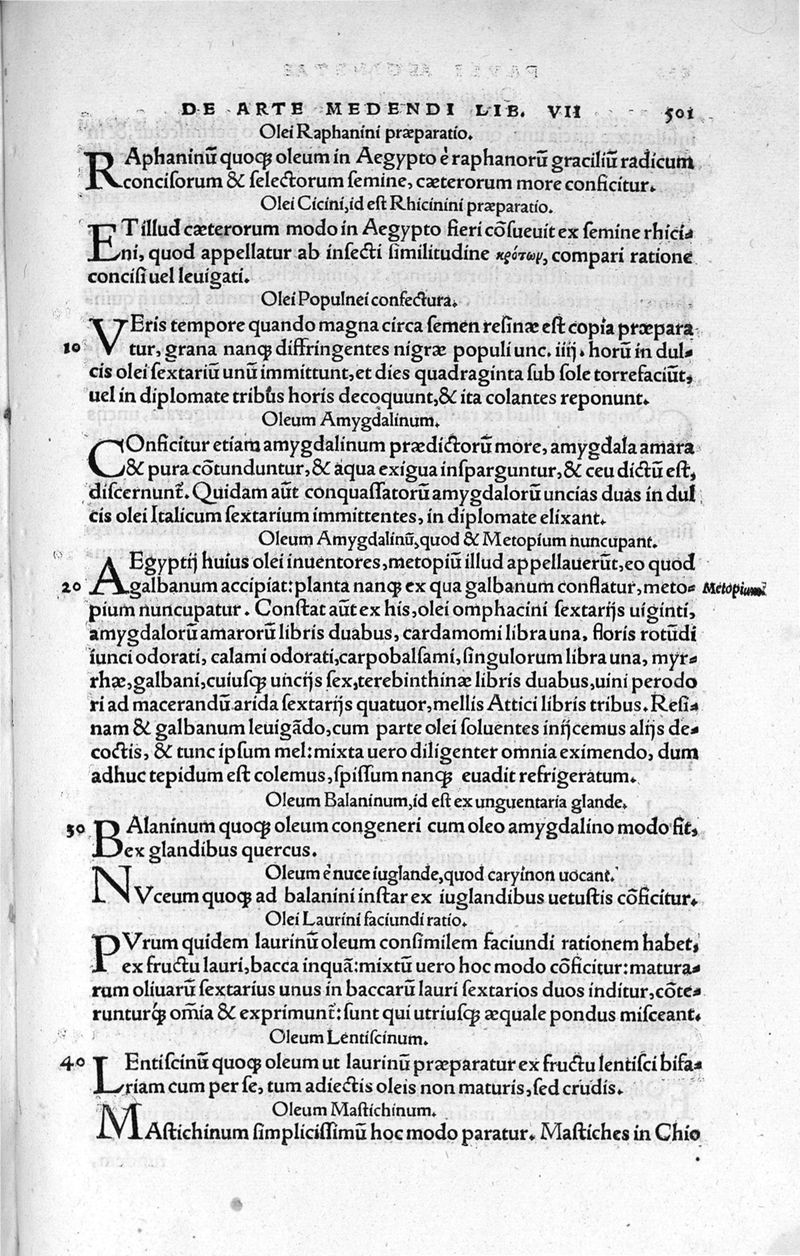 DE ARTE MEDENDI LIB. VII 501
Olei Raphanini præparatio.
RAphaninũ quoqꝫ oleum in Aegypto è raphanorũ gracilũ radicum
conciſorum & ſelectorum ſemine, cæterorum more conficitur.
Olei Cicini, id eſt Rhicinini præparatio.
ET illud cæterorum modo in Aegypto fieri cõſueuit ex ſemine rhici-
ni, quod appellatur ab inſecti ſimilitudine κρότωμ, compari ratione
conciſi uel leuigati.
Olei Populnei confectura.
VEris tempore quando magna circa ſemen reſinæ eſt copia præpara
10 tur, grana nanqꝫ diffringentes nigræ populi unc. iiij. horũ in dul-
cis olei ſextariũ unũ immittunt, et dies quadraginta ſub ſole torrefaciũt,
uel in diplomate tribus horis decoquunt, & ita colantes reponunt.
Oleum Amygdalinum.
COnficitur etiam amygdalinum prædictorũ more, amygdala amara
& pura cõtunduntur, & aqua exigua inſparguntur, & ceu dictũ eſt,
diſcernunt᷑. Quidam aũt conquaſſatorũ amygdalorũ uncias duas in dul
cis olei Italicum ſextarium immittentes, in diplomate elixant.
Oleum Amygdalinũ, quod & Metopium nuncupant.
AEgyptij huius olei inuentores, metopiũ illud appellauerũt, eo quod
20 galbanum accipiat: planta nanqꝫ ex qua galbanum conflatur, meto- Metopium
pium nuncupatur. Conſtat aũt ex his, olei omphacini ſextarijs uiginti,
amygdalorũ amarorũ libris duabus, cardamomi libra una, floris rotũdi
iunci odorati, calami odorati, carpobalſami, ſingulorum libra una, myr-
rhæ, galbani, cuiuſqꝫ uncijs ſex, terebinthinæ libris duabus, uini perodo
ri ad macerandũ arida ſextarijs quatuor, mellis Attici libris tribus. Reſi-
nam & galbanum leuigãdo, cum parte olei ſoluentes inijcemus alijs de-
coctis, & tunc ipſum mel: mixta uero diligenter omnia eximendo, dum
adhuc tepidum eſt colemus, ſpiſſum nanqꝫ euadit refrigeratum.
Oleum Balaninum, id eſt ex unguentaria glande.
30 BAlaninum quoqꝫ oleum congeneri cum oleo amygdalino modo fit,
ex glandibus quercus.
Oleum è nuce iuglande, quod caryinon uocant.
NVceum quoqꝫ ad balanini inſtar ex iuglandibus uetuſtis cõficitur.
Olei Laurini faciundi ratio.
PVrum quidem laurinũ oleum conſimilem faciundi rationem habet,
ex fructu lauri, bacca inquã: mixtũ uero hoc modo cõficitur: matura-
rum oliuarũ ſextarius unus in baccarũ lauri ſextarios duos inditur, cõte-
runturqꝫ om̃ia & exprimunt᷑: ſunt qui utriuſqꝫ æquale pondus miſceant.
Oleum Lentiſcinum.
40 LEntiſcinũ quoqꝫ oleum ut laurinũ præparatur ex fructu lentiſci bifa-
riam cum per ſe, tum adiectis oleis non maturis, ſed crudis.
Oleum Maſtichinum.
MAſtichinum ſimpliciſſimũ hoc modo paratur. Maſtiches in Chio